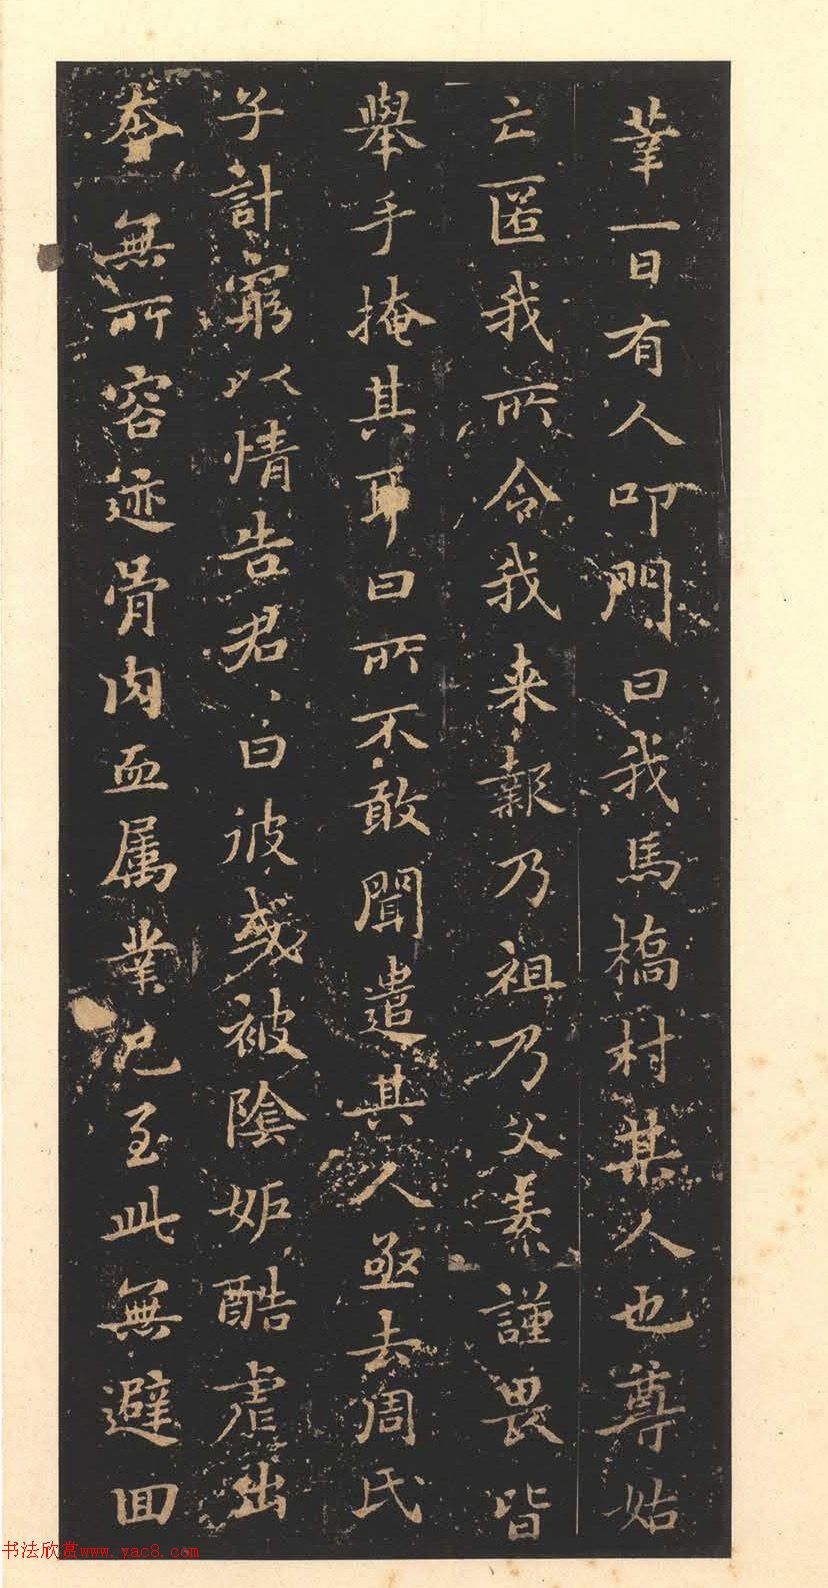 葷一日有人叩門曰我馬橋村某人也尊姑
亡匿我所令我来報乃祖乃父素謹畏皆
舉手掩其耳曰所不敢聞遣其人亟去周氏
子計窮以情告君君曰彼或被陰妬酷虐出
奔無所容迹骨肉血属業已至此無避回
书法欣赏www.yac8.com